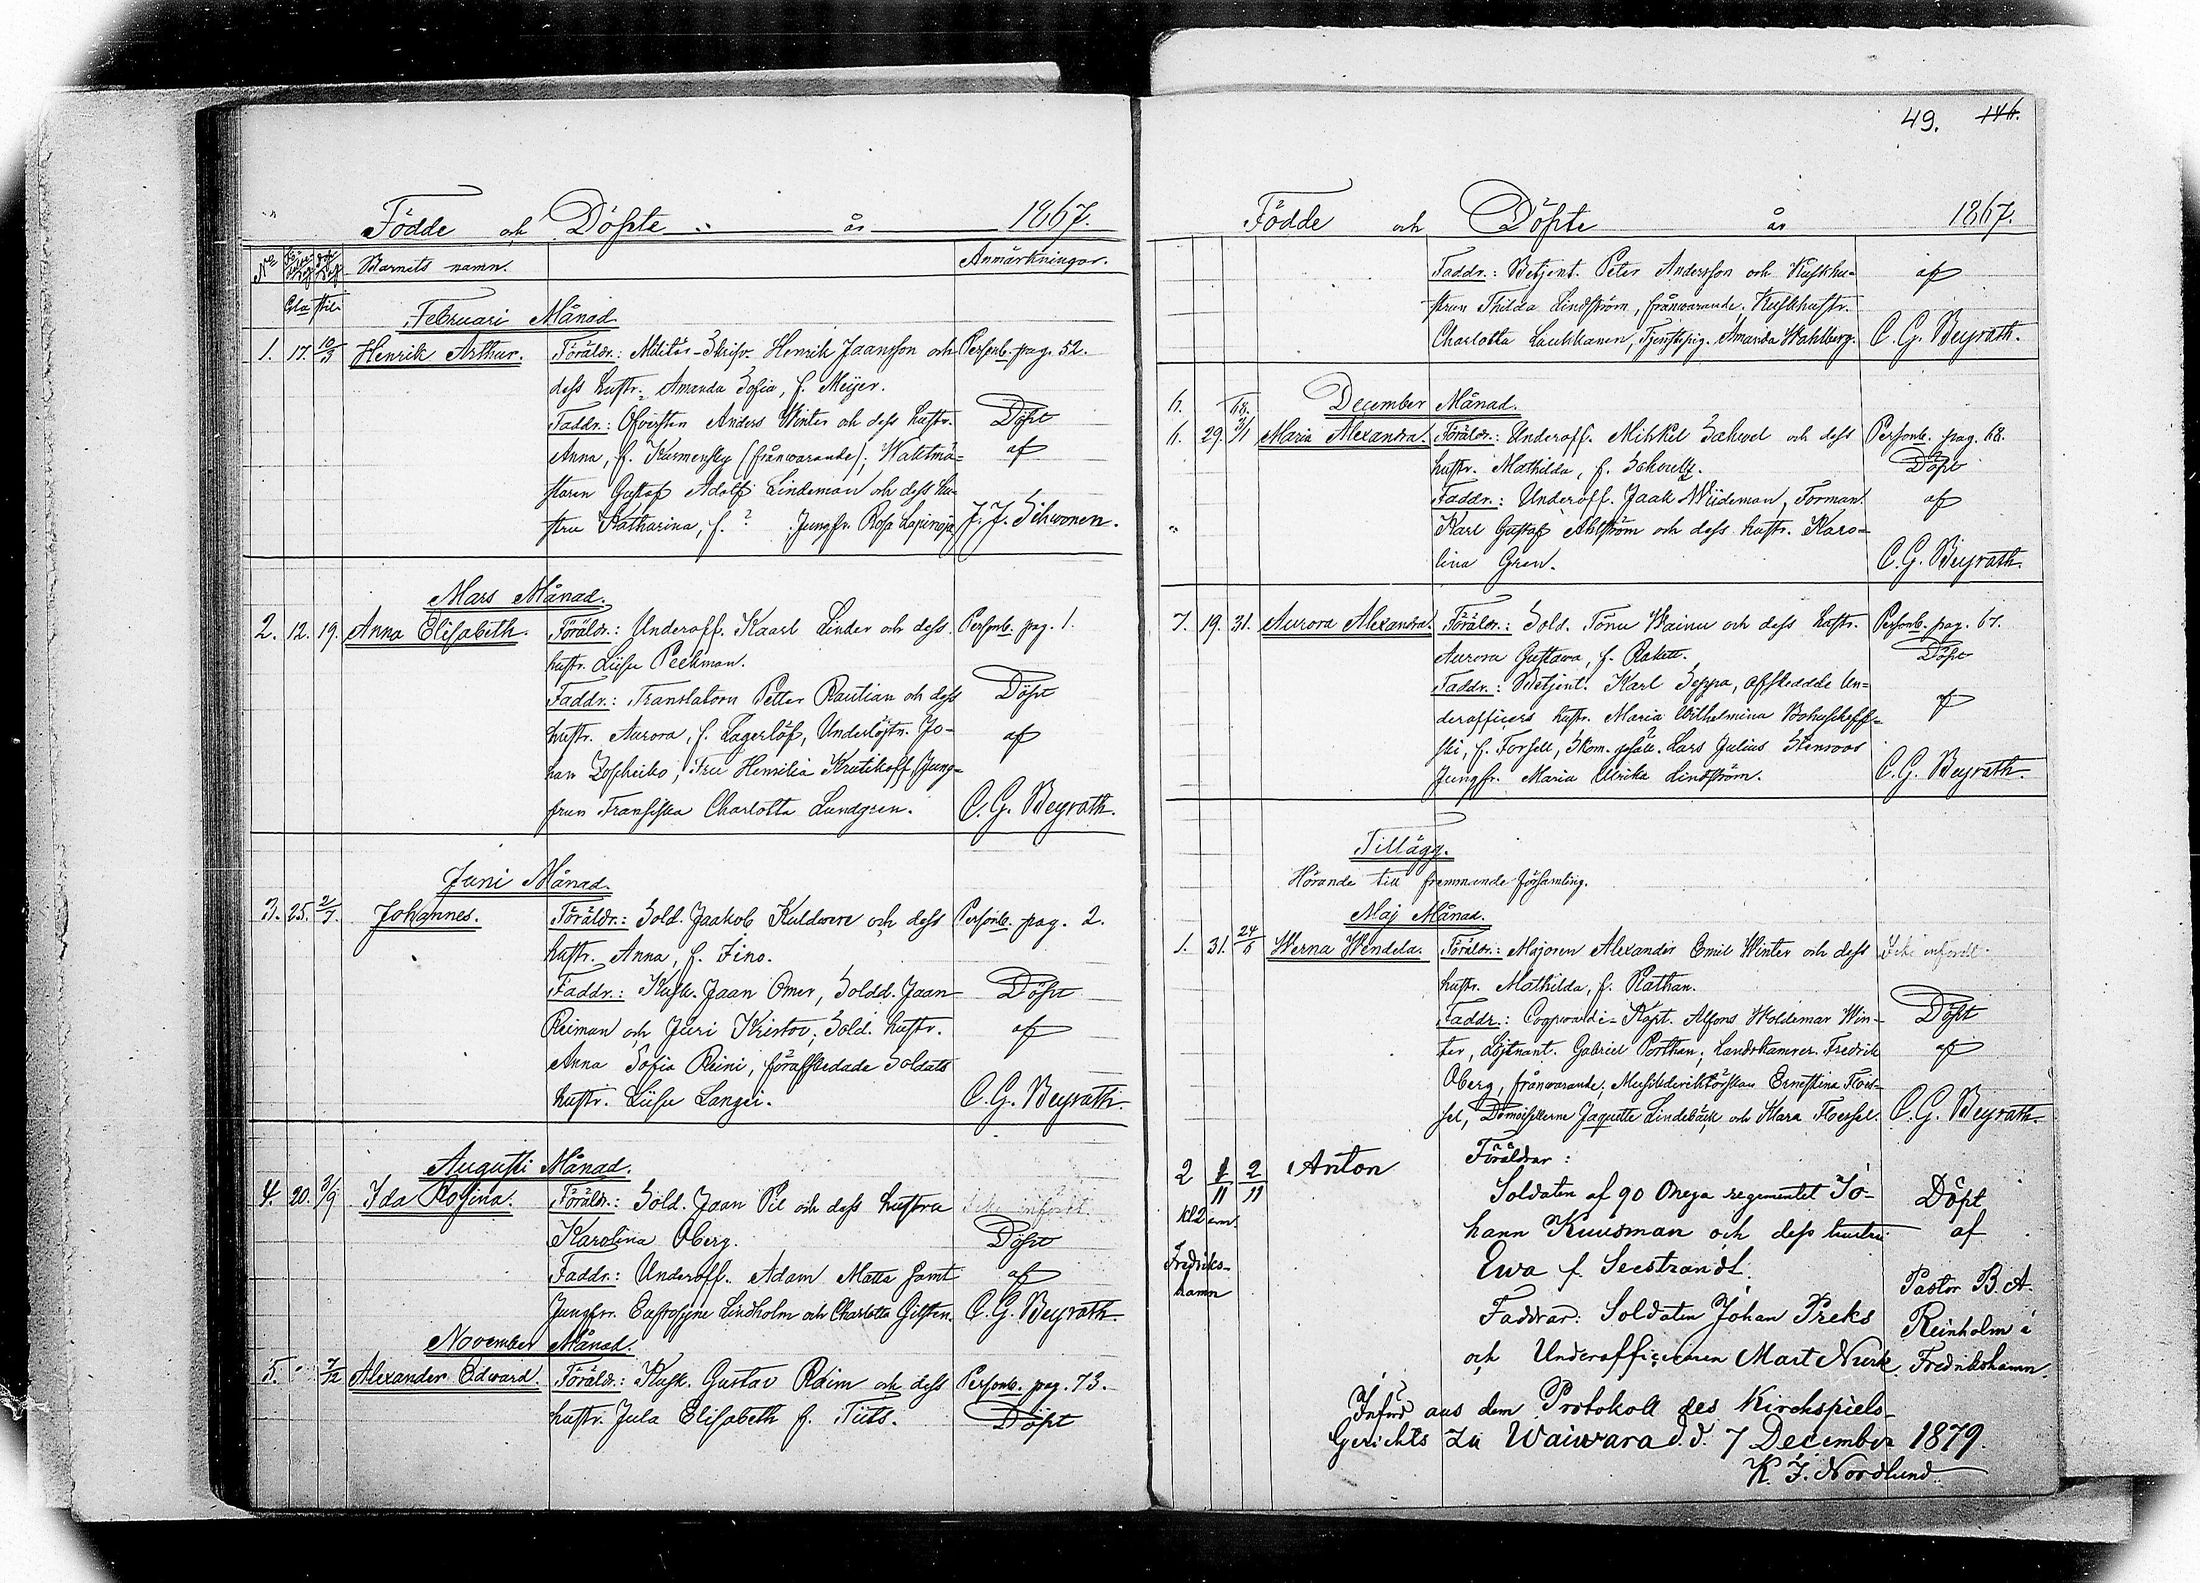 Födde och Döpte år 1867.
No Barnets namn. Anmärkningar.
Gla stil.
Februari Månad.
1. 17. 10/3 Henrik Arthur. Föräldr.: Militär-Skrifv. Henrik Jaansson och Personb. pag. 52.
dess hustr. Amanda Sofia, f. Meijer.
Faddr.: Öfversten Anders Winter och dess hustr. Döpt
Anna, f. Kurmensky (frånvarande); Waktmä- af
staren Gustaf Adolf Lindeman och dess hu-
stru Katharina, f. ? Jungfr. Rosa Lapinoja J. J. Sihvonen.
Mars Månad.
2. 12. 19. Anna Elisabeth. Föräldr.: Underoff. Kaarl Linder och dess Personb. pag. 1.
hustr. Liisu Peekman.
Faddr.: Translatorn Petter Rautian och dess Döpt
hustr. Aurora, f. Lagerlöf, Underlöjtn. Jo- af
han Zoscheiko, Fru Hensilia Krutikoff, Jung-
frun Fransiska Charlotta Lundgren. C. G. Beyrath.
Juni Månad.
3. 25. 2/7. Johannes. Föräldr.: Sold. Jaakob Kuldwere och dess Personb. pag. 2.
hustr. Anna, f. Jino.
Faddr.: Kusk. Jaan Omer, Soldd. Jaan Döpt
Reiman och Jüri Kristov; Sold. hustr. af
Anna Sofia Reini, förafskedade Soldats
hustr. Liisu Langei. C. G. Beyrath.
Augusti Månad.
4. 20. 3/9 Ida Rosina. Föräldr.: Sold. Jaan Pil och dess hustru Icke införd.
Karolina Öberg. Döpt
Faddr.: Underoff. Adam Matta samt af
Jungfrr. Eufrosyne Lindholm och Charlotta Gilsten. C. G. Beyrath.
November Månad.
5. 7/12 Alexander Edward. Föräldr.: Kusk. Gustav Raim och dess Personb. pag. 73.
hustr. Jula Elisabeth f. Tiits. Döpt
49. 146.
Födde och Döpte år 1867.
Faddr.: Betjent. Peter Andersson och Kuskhu- af
strun Thilda Lindström, frånvarande; Kuskhustr.
Charlotta Laukkanen, Tjenstepig. Amanda Wahlberg. C. G. Beyrath.
December Månad.
6. 29. 3/1 Maria Alexandra. Föräldr.: Underoff. Mihkel Sahwel och dess Personb. pag. 68.
hustr. Mathilda, f. Schoultz. Döpt
Faddr.: Underoff. Jaak Wiideman, Forman af
Karl Gustaf Ahlström och dess hustr. Karo-
lina Gren. C. G. Beyrath.
7. 19. 31. Aurora Alexandra. Föräldr.: Sold. Tõnu Wainu och dess hustr. Personb. pag. 67.
Aurora Gustava, f. Rakett. Döpt
Faddr.: Betjent. Karl Seppa, afskedade Un-
derofficers hustr. Maria Wilhelmina Bohuscheff- af
ski, f. Forsell, Skom. gesäll. Lars Julius Stenroos
Jungfr. Maria Ulrika Lindström. C. G. Beyrath.
Tillägg.
Hörande till fremmande församling.
Maj Månad.
1. 31. 24/6 Werna Wendela. Föräldr.: Majoren Alexander Emil Winter och dess Icke införd.
hustr. Mathilda, f. Rathan.
Faddr.: Coopvardi-Kapt. Alfons Woldemar Win- Döpt
ter, Löjtnant. Gabriel Porthan; Landtkamrer. Fredrik af
Öberg, frånvarande; Musikdirektörskan Ernestina Floes-
sel, Demoisellerne Jaquette Lindebäck och Klara Floessel. C. G. Beyrath.
2 1/11 2/11 Anton Föräldrar:
Soldaten af 90 Onega regementet Jo- Döpt
kl 2 em. hann Kuusman och dess hustru af
Fredriks- Ewa f. Seestrandt.
hamn Faddrar: Soldaten Johan Preks Pastor B. A.
och Underofficeraren Mart Nurk. Reinholm i
Fredrikshamn.
Införd aus dem Protokoll des Kirchspiels-
Gerichts zu Waiwara d.d. 7 December 1879.
K. J. Nordlund